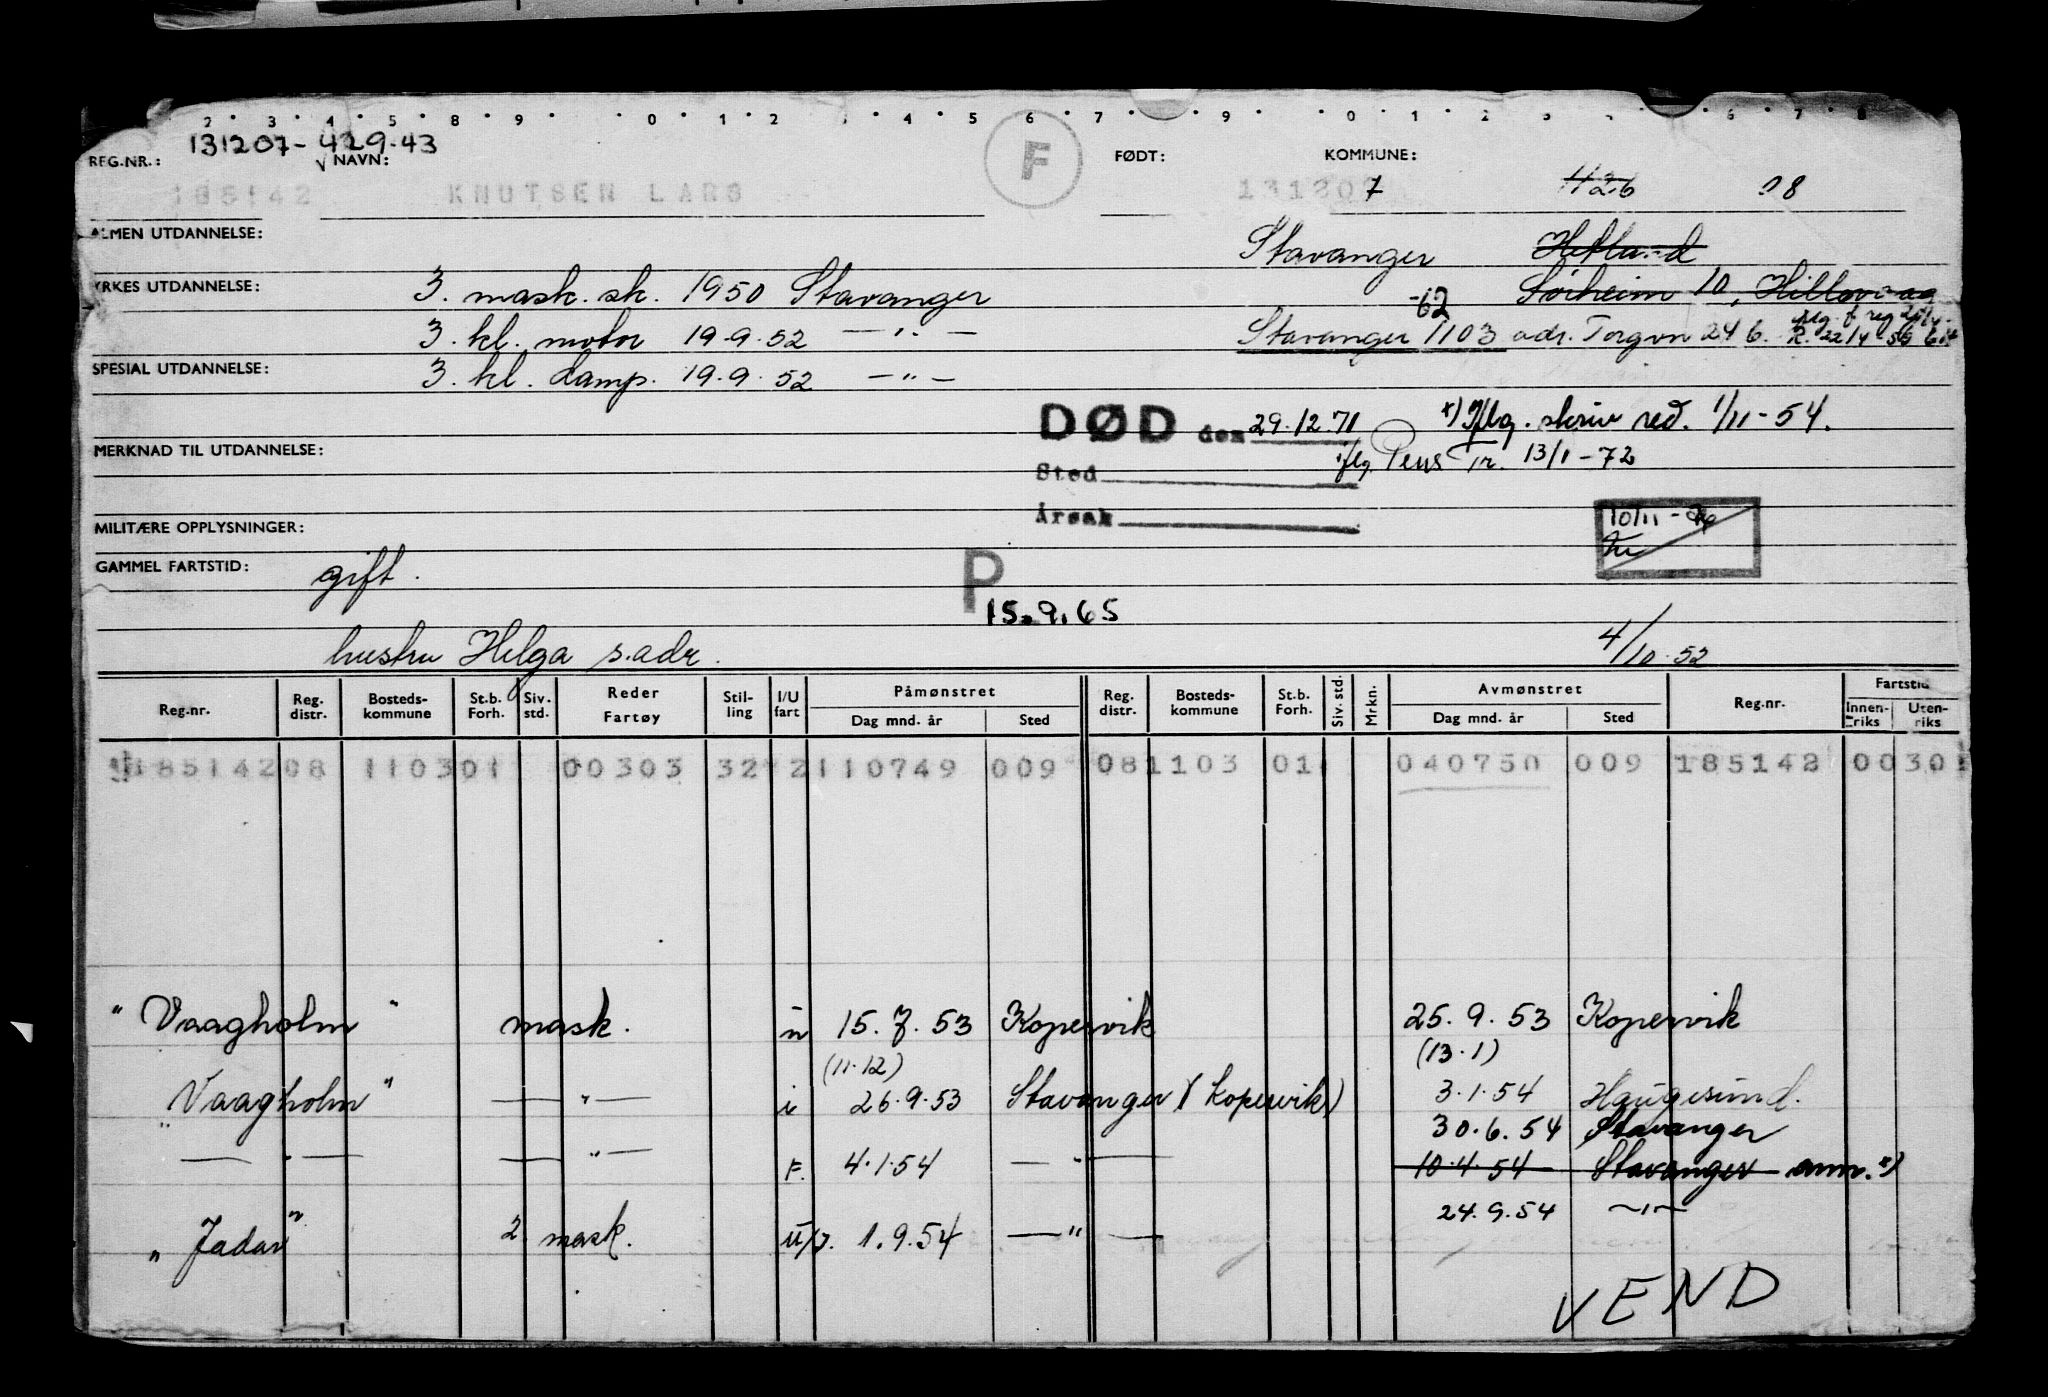 2 3 4 5 8 9 0 1 2 4 5 6 7 9 0 1 2 3 6 7 8
131207-42943
REG.NR.: NAVN: F FØDT: KOMMUNE:
185142 KNUTSEN LARS 131207 1126 08
ALMEN UTDANNELSE: Stavanger Hetland
YRKES UTDANNELSE: 3. mask. sk. 1950 Stavanger -62 Sørheim 10, Hillevaag
3. kl. motor 19.9.52 — " — Stavanger 1103 adr. Torgvn 24 b.
SPESIAL UTDANNELSE: 3. kl. damp. 19.9.52 — " —
DØD den 29.12.71 x) Iflg. skriv red. 1/11-54.
MERKNAD TIL UTDANNELSE: iflg. Pens Tr. 13/1-72
Sted
Årsak
MILITÆRE OPPLYSNINGER: 10/11-
GAMMEL FARTSTID: gift.
P 15.9.65
hustru Helga s.adr. 4/10.52
Reg.nr. Reg. distr. Bosteds-kommune St.b. Forh. Siv. std. Reder Fartøy Stil-ling I/U fart Påmønstret Dag mnd. år Sted Reg. distr. Bosteds-kommune St.b. Forh. Siv. std. Mrkn. Avmønstret Dag mnd. år Sted Reg.nr. Fartstid Innen-riks Uten-riks
185142 08 1103 01 00303 32 2 2 110749 009 08 1103 01 040750 009 185142 00 301
"Vaagholm" mask. u 15.7.53 Kopervik 25.9.53 Kopervik
(11.12) (13.1)
"Vaagholm" — " — i 26.9.53 Stavanger (Kopervik) 3.1.54 Haugesund.
30.6.54 Stavanger
— " — — " — F. 4.1.54 — " — 10.4.54 Stavanger ann. x)
24.9.54 — " —
"Jadar" 2. mask. U/I. 1.9.54 — " —
VEND